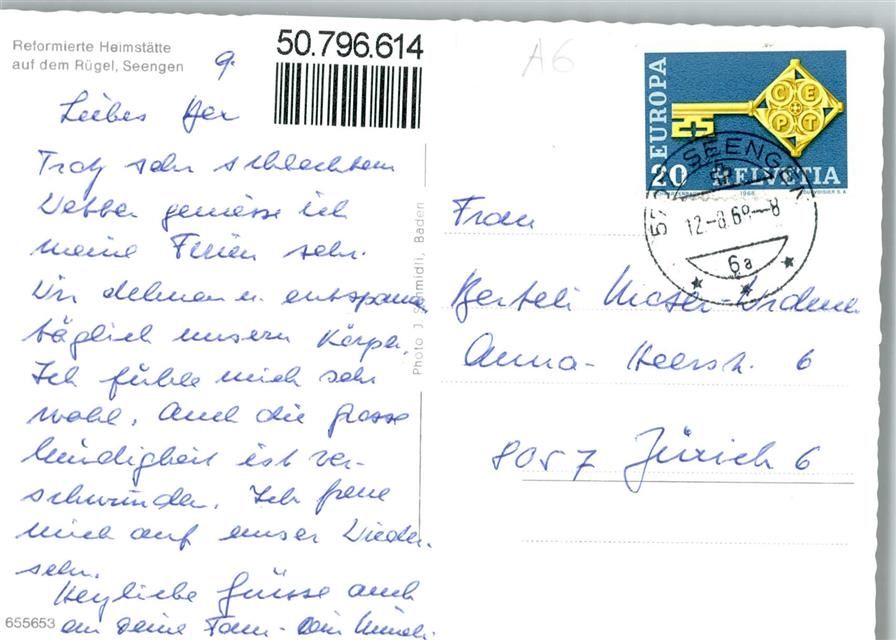 Reformierte Heimstätte
auf dem Rügel, Seengen
9.
50.796.614
A6
Liebes
Trotz sehr schlechtem
Wetter geniesse ich
meine Ferien sehr.
Wir dehnen u. entspannen
täglich unsern Körper.
Ich fühle mich sehr
wohl. Auch die grosse
Müdigkeit ist ver-
schwunden. Ich freue
mich auf unser Wieder-
sehn.
Herzliche Grüsse auch
an Deine Fam. - Dein
655653
Photo J. Schmidli, Baden
EUROPA
CEPT
20 HELVETIA
1968
COURVOISIER S.A.
SEENGEN
12.-8.69--8
6a
Frau
Berteli Moser-
Anna-Heerstr. 6
8057 Zürich 6